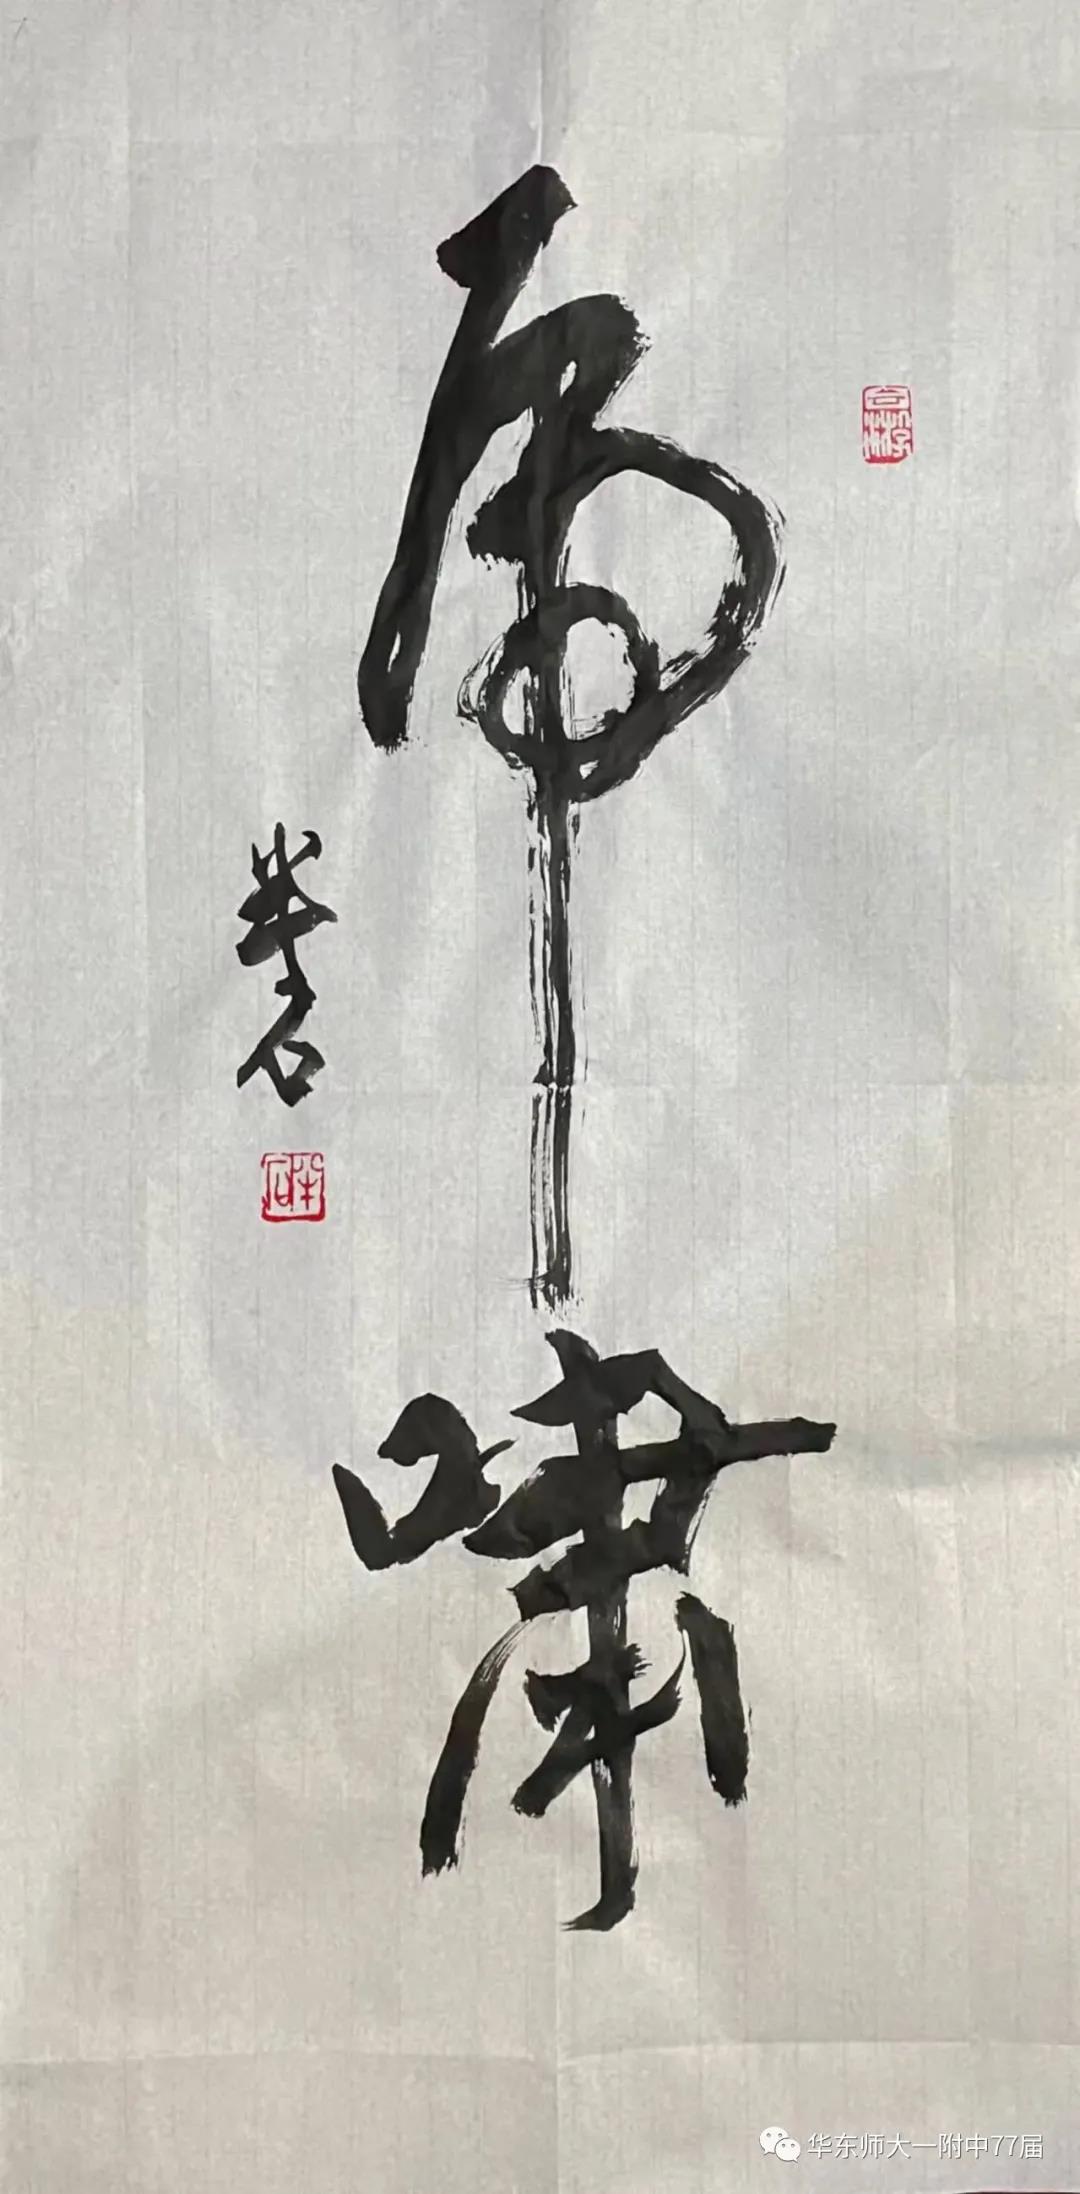 虎啸
半石
半石
华东师大一附中77届